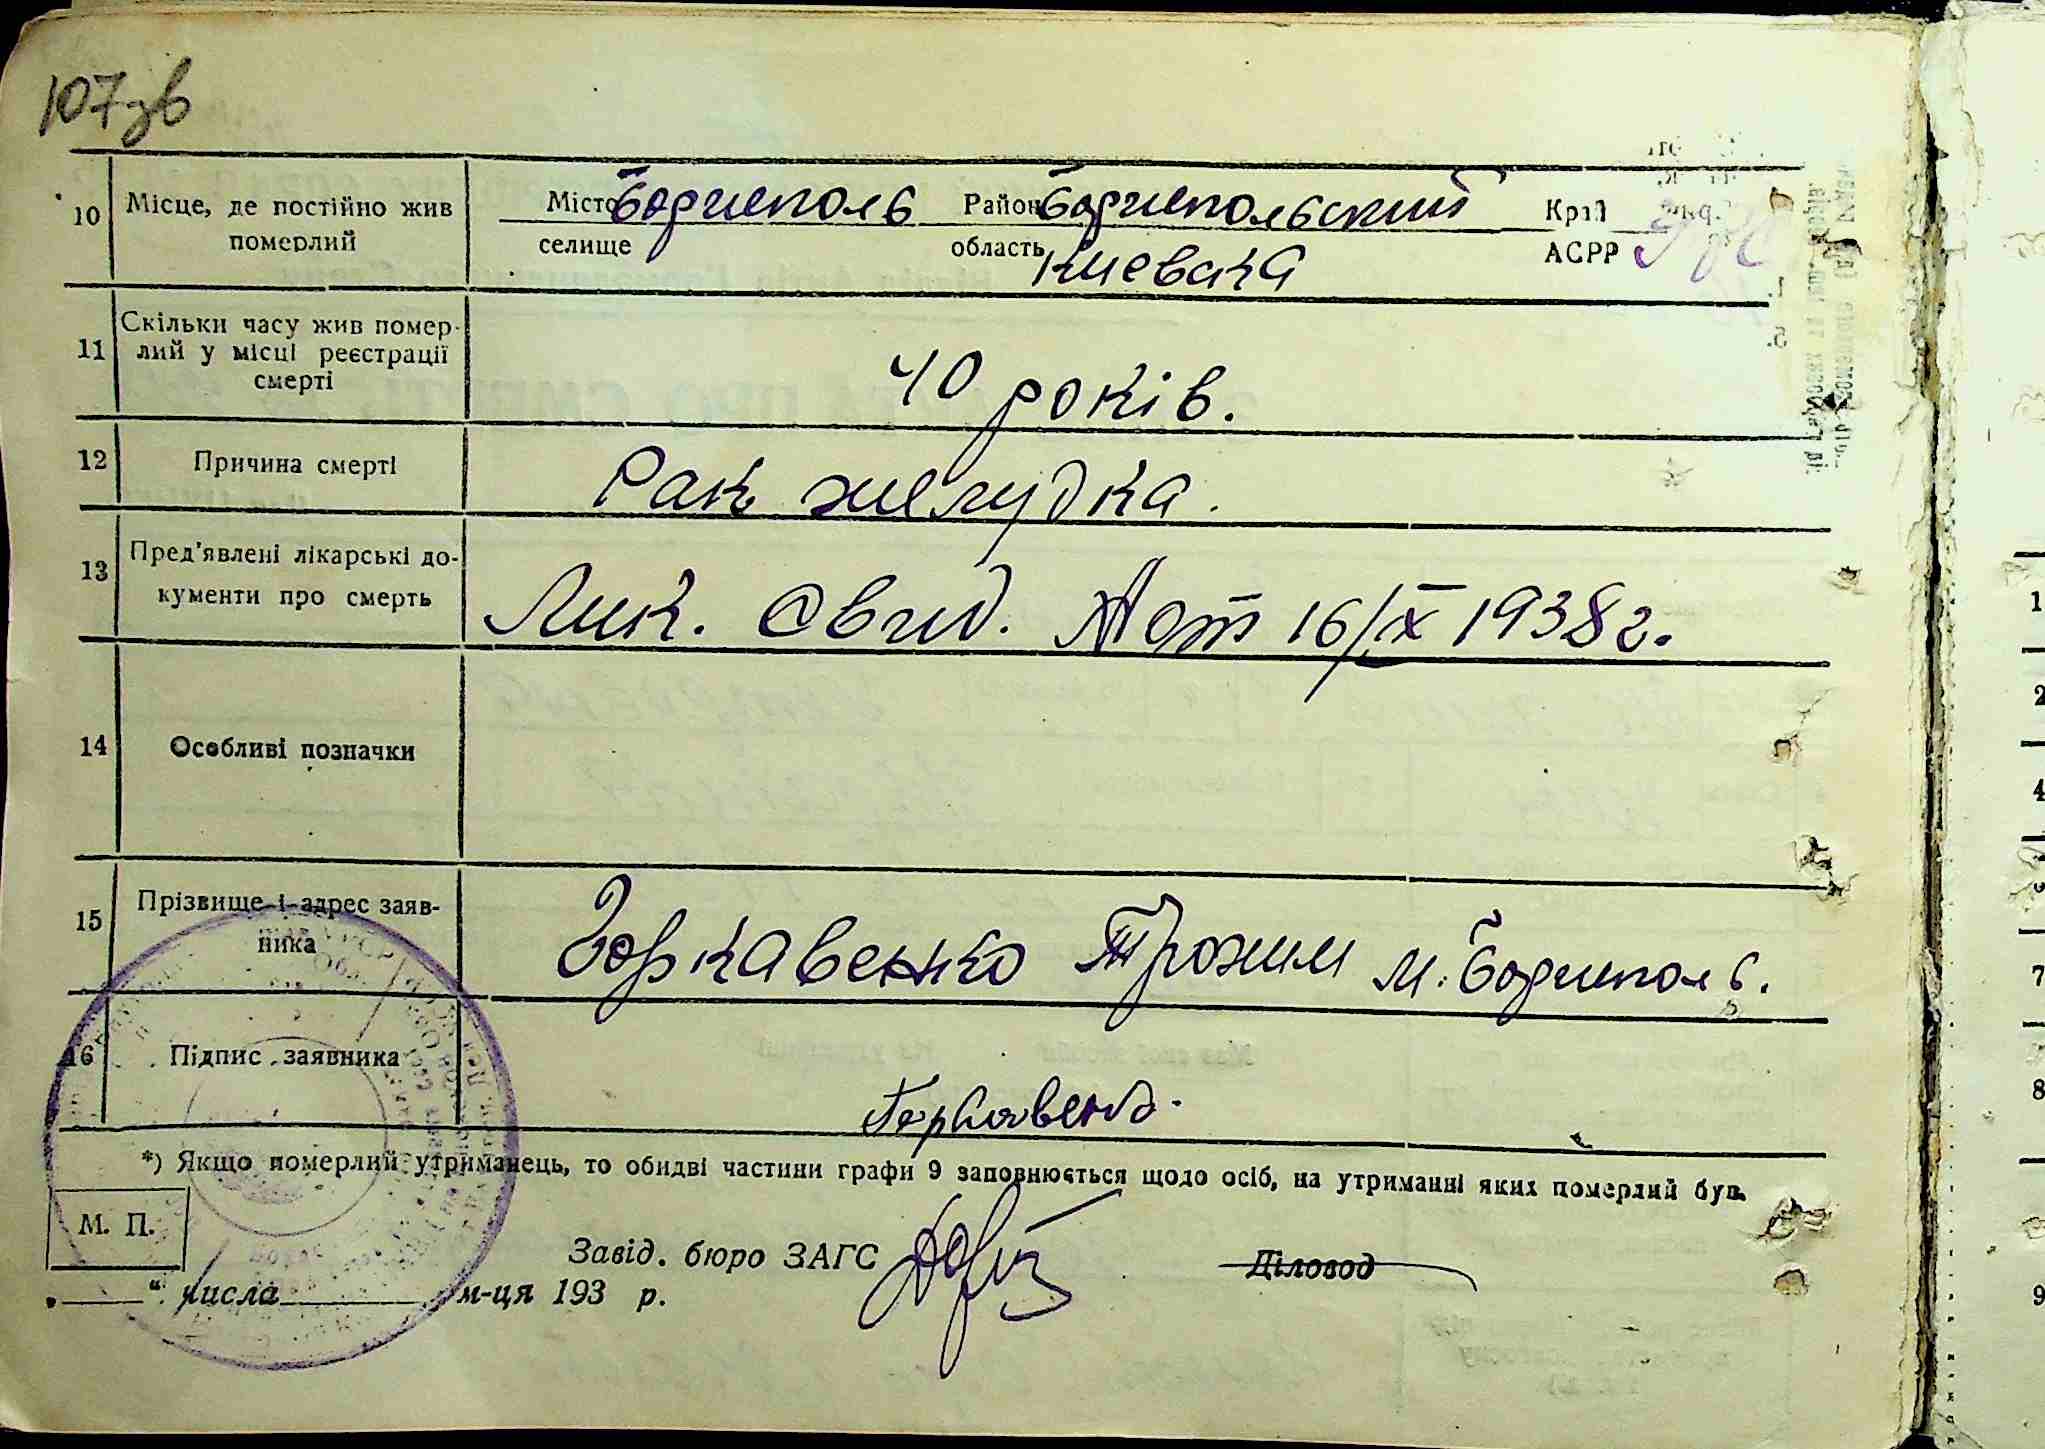 107зв
10 Місце, де постійно жив Місто Бориспољ Район Бориспольский Край
померлий селище область Киевска АСРР
11 Скільки часу жив помер-
лий у місці реєстрації
смерті
40 років.
12 Причина смерті Рак желудка.
13 Пред'явлені лікарські до-
кументи про смерть
Лик. Свид. № от 16/IX 1938 г.
14 Особливі позначки
15 Прізвище і адрес заяв-
ника
Горкавенко Трохим м. Борисполь.
16 Підпис заявника
Горкавенко
*) Якщо померлий утриманець, то обидві частини графи 9 заповнюється щодо осіб, на утриманні яких померлий був.
М. П.
Завід. бюро ЗАГС Діловод
„ “ числа м-ця 193 р.
1
2
4
7
8
9